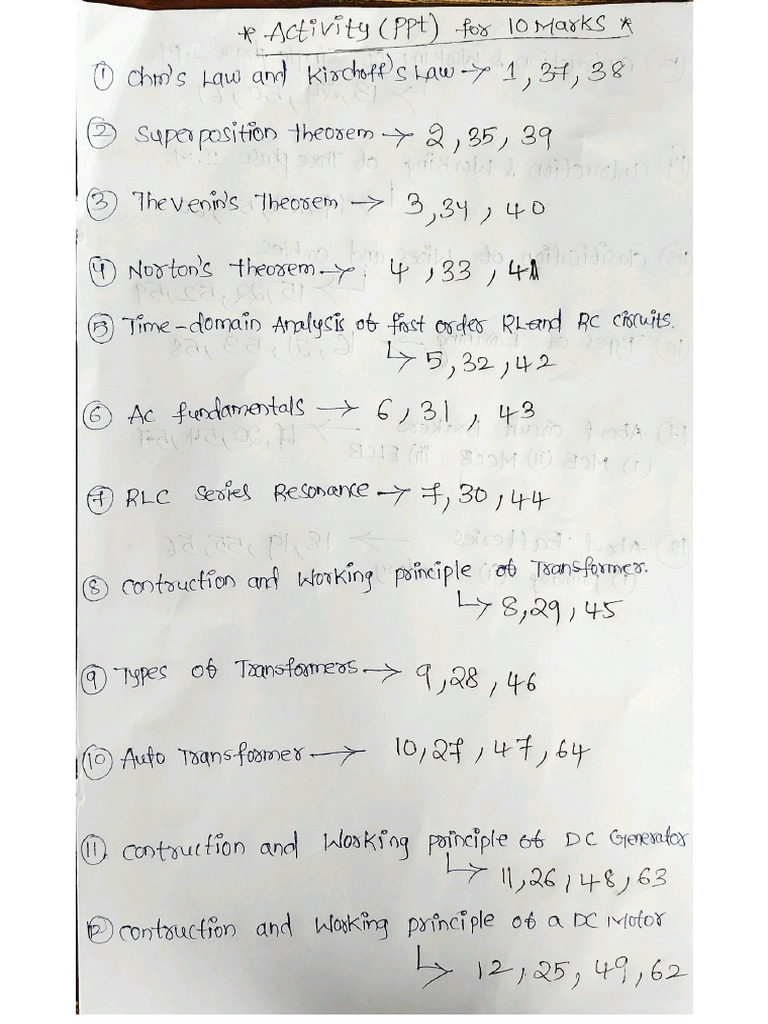 * Activity (PPt) for 10 Marks *
① Ohm's Law and Kirchoff's Law → 1, 37, 38
② Superposition theorem → 2, 35, 39
③ Thevenin's Theorem → 3, 34, 40
④ Norton's theorem → 4, 33, 41
⑤ Time-domain Analysis of first order RL and RC circuits.
↳ 5, 32, 42
⑥ Ac fundamentals → 6, 31, 43
⑦ RLC series Resonance → 7, 30, 44
⑧ contruction and working principle of Transformer.
↳ 8, 29, 45
⑨ Types of Transformers → 9, 28, 46
⑩ Auto Transformer → 10, 27, 47, 64
⑪ contruction and working principle of DC Generator
↳ 11, 26, 48, 63
⑫ contruction and working principle of a DC Motor
↳ 12, 25, 49, 62